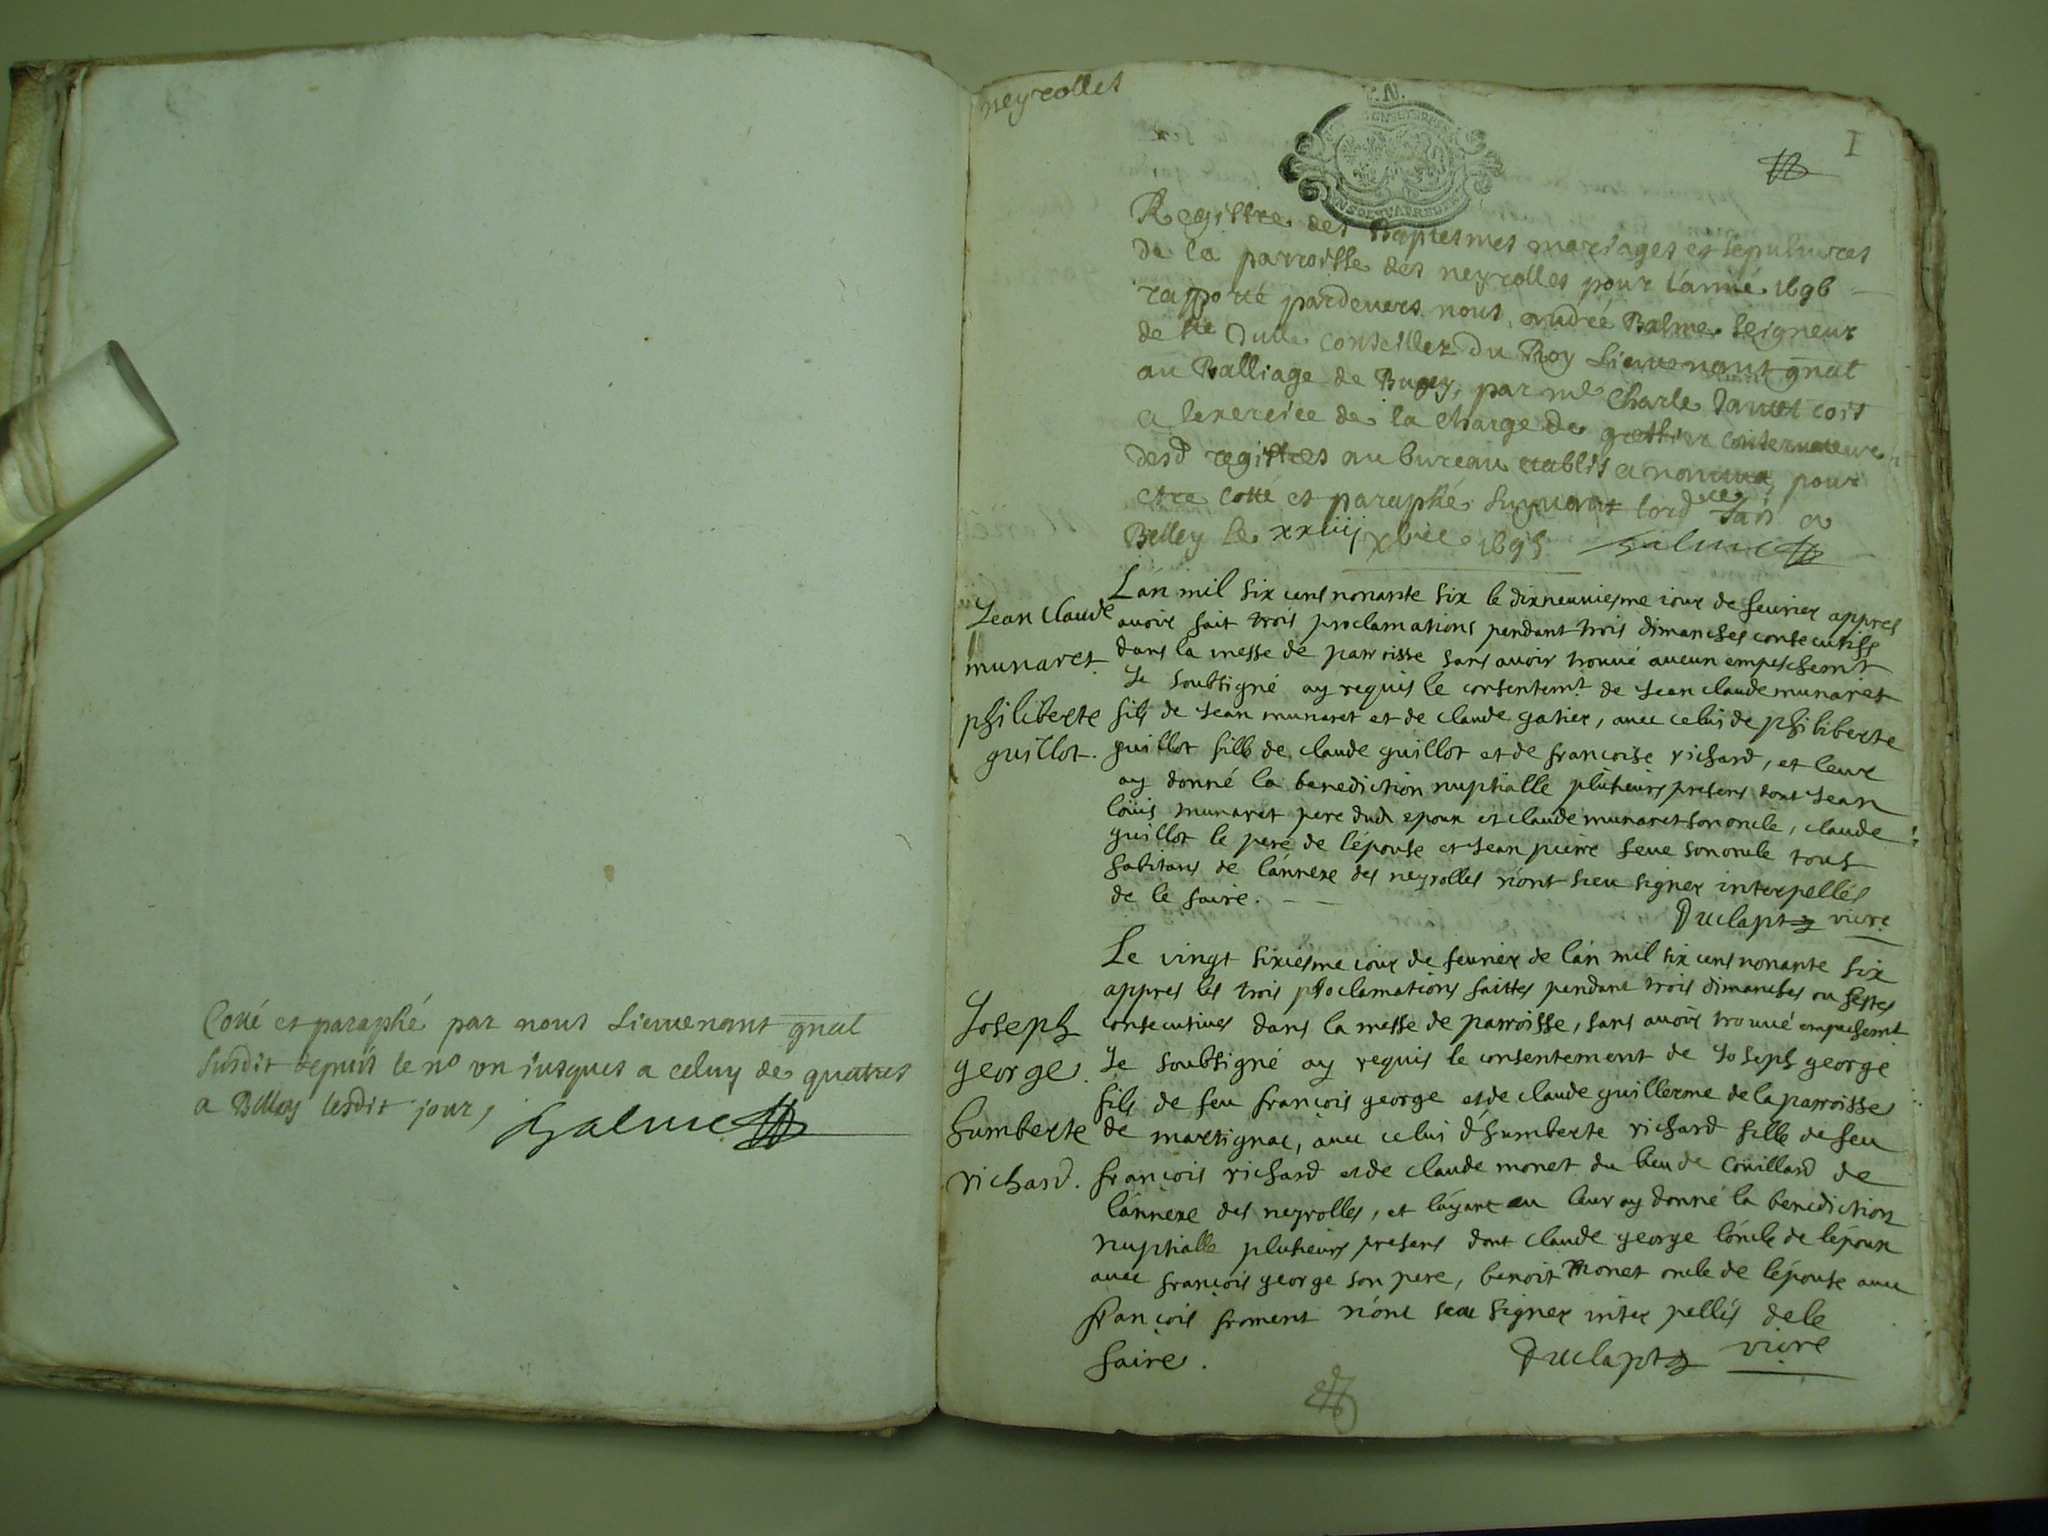 Cotté et paraphé par nous Lieuvenant gnal
susdit depuis le no un iusques a celuy de quatres
a Belley lesdit jour,
Balme
neyrolles
I
Registre des Baptesmes mariages et sepultures
de la parroisse des neyrolles pour l'année 1696
rapporté pardevers nous, andré Balme seigneur
de conseiller du Roy Lieuvenant gnal
au Balliage de Bugey, par me Charle
a lexercice de la charge de greffier conservateur
desd registres au bureau establis a nantua, pour
etre cotté et paraphé suyvant lord fait a
Belley le xxiiij xbre 1695 Balme
L'an mil six cens nonante six le dixneuviesme iour de fevrier appres
avoir fait trois proclamations pendant trois dimanches consecutifs
dans la messe de parroisse sans avoir trouvé aucun empeschemt
Je soubsigné ay requis le consentemt de Jean claude munaret
fils de Jean munaret et de claude gatier, avec celui de philiberte
guillot fille de claude guillot et de francoise richard, et leur
ay donné la benediction nuptialle plusieurs presens dont Jean
loüis munaret pere dud epoux et claude munaret son oncle, claude
guillot le pere de l'épouse et Jean pierre seve son oncle tous
habitans de l'annexe des neyrolles n'ont sceu signer interpellés
de le faire.
Duclapt vicre
Jean Claude
munaret.
philiberte
guillot.
Le vingt sixiesme iour de fevrier de l'an mil six cens nonante six
appres les trois proclamations faittes pendant trois dimanches ou festes
consecutives dans la messe de parroisse, sans avoir trouvé empeschemt
Je soubsigné ay requis le consentement de Joseph george
fils de feu françois george et de claude guillerme de la parroisse
de martignac, avec celui d'humberte richard fille de feu
françois richard et de claude monet du lieu de coüillard de
l'annexe des neyrolles, et l'ayant eu leur ay donné la benediction
nuptialle plusieurs presens dont claude george l'oncle de l'époux
avec françois george son pere, benoit monet oncle de l'épouse avec
françois froment n'ont sceu signer interpellés de le
faire.
Duclapt vicre
Joseph
george.
humberte
richard.